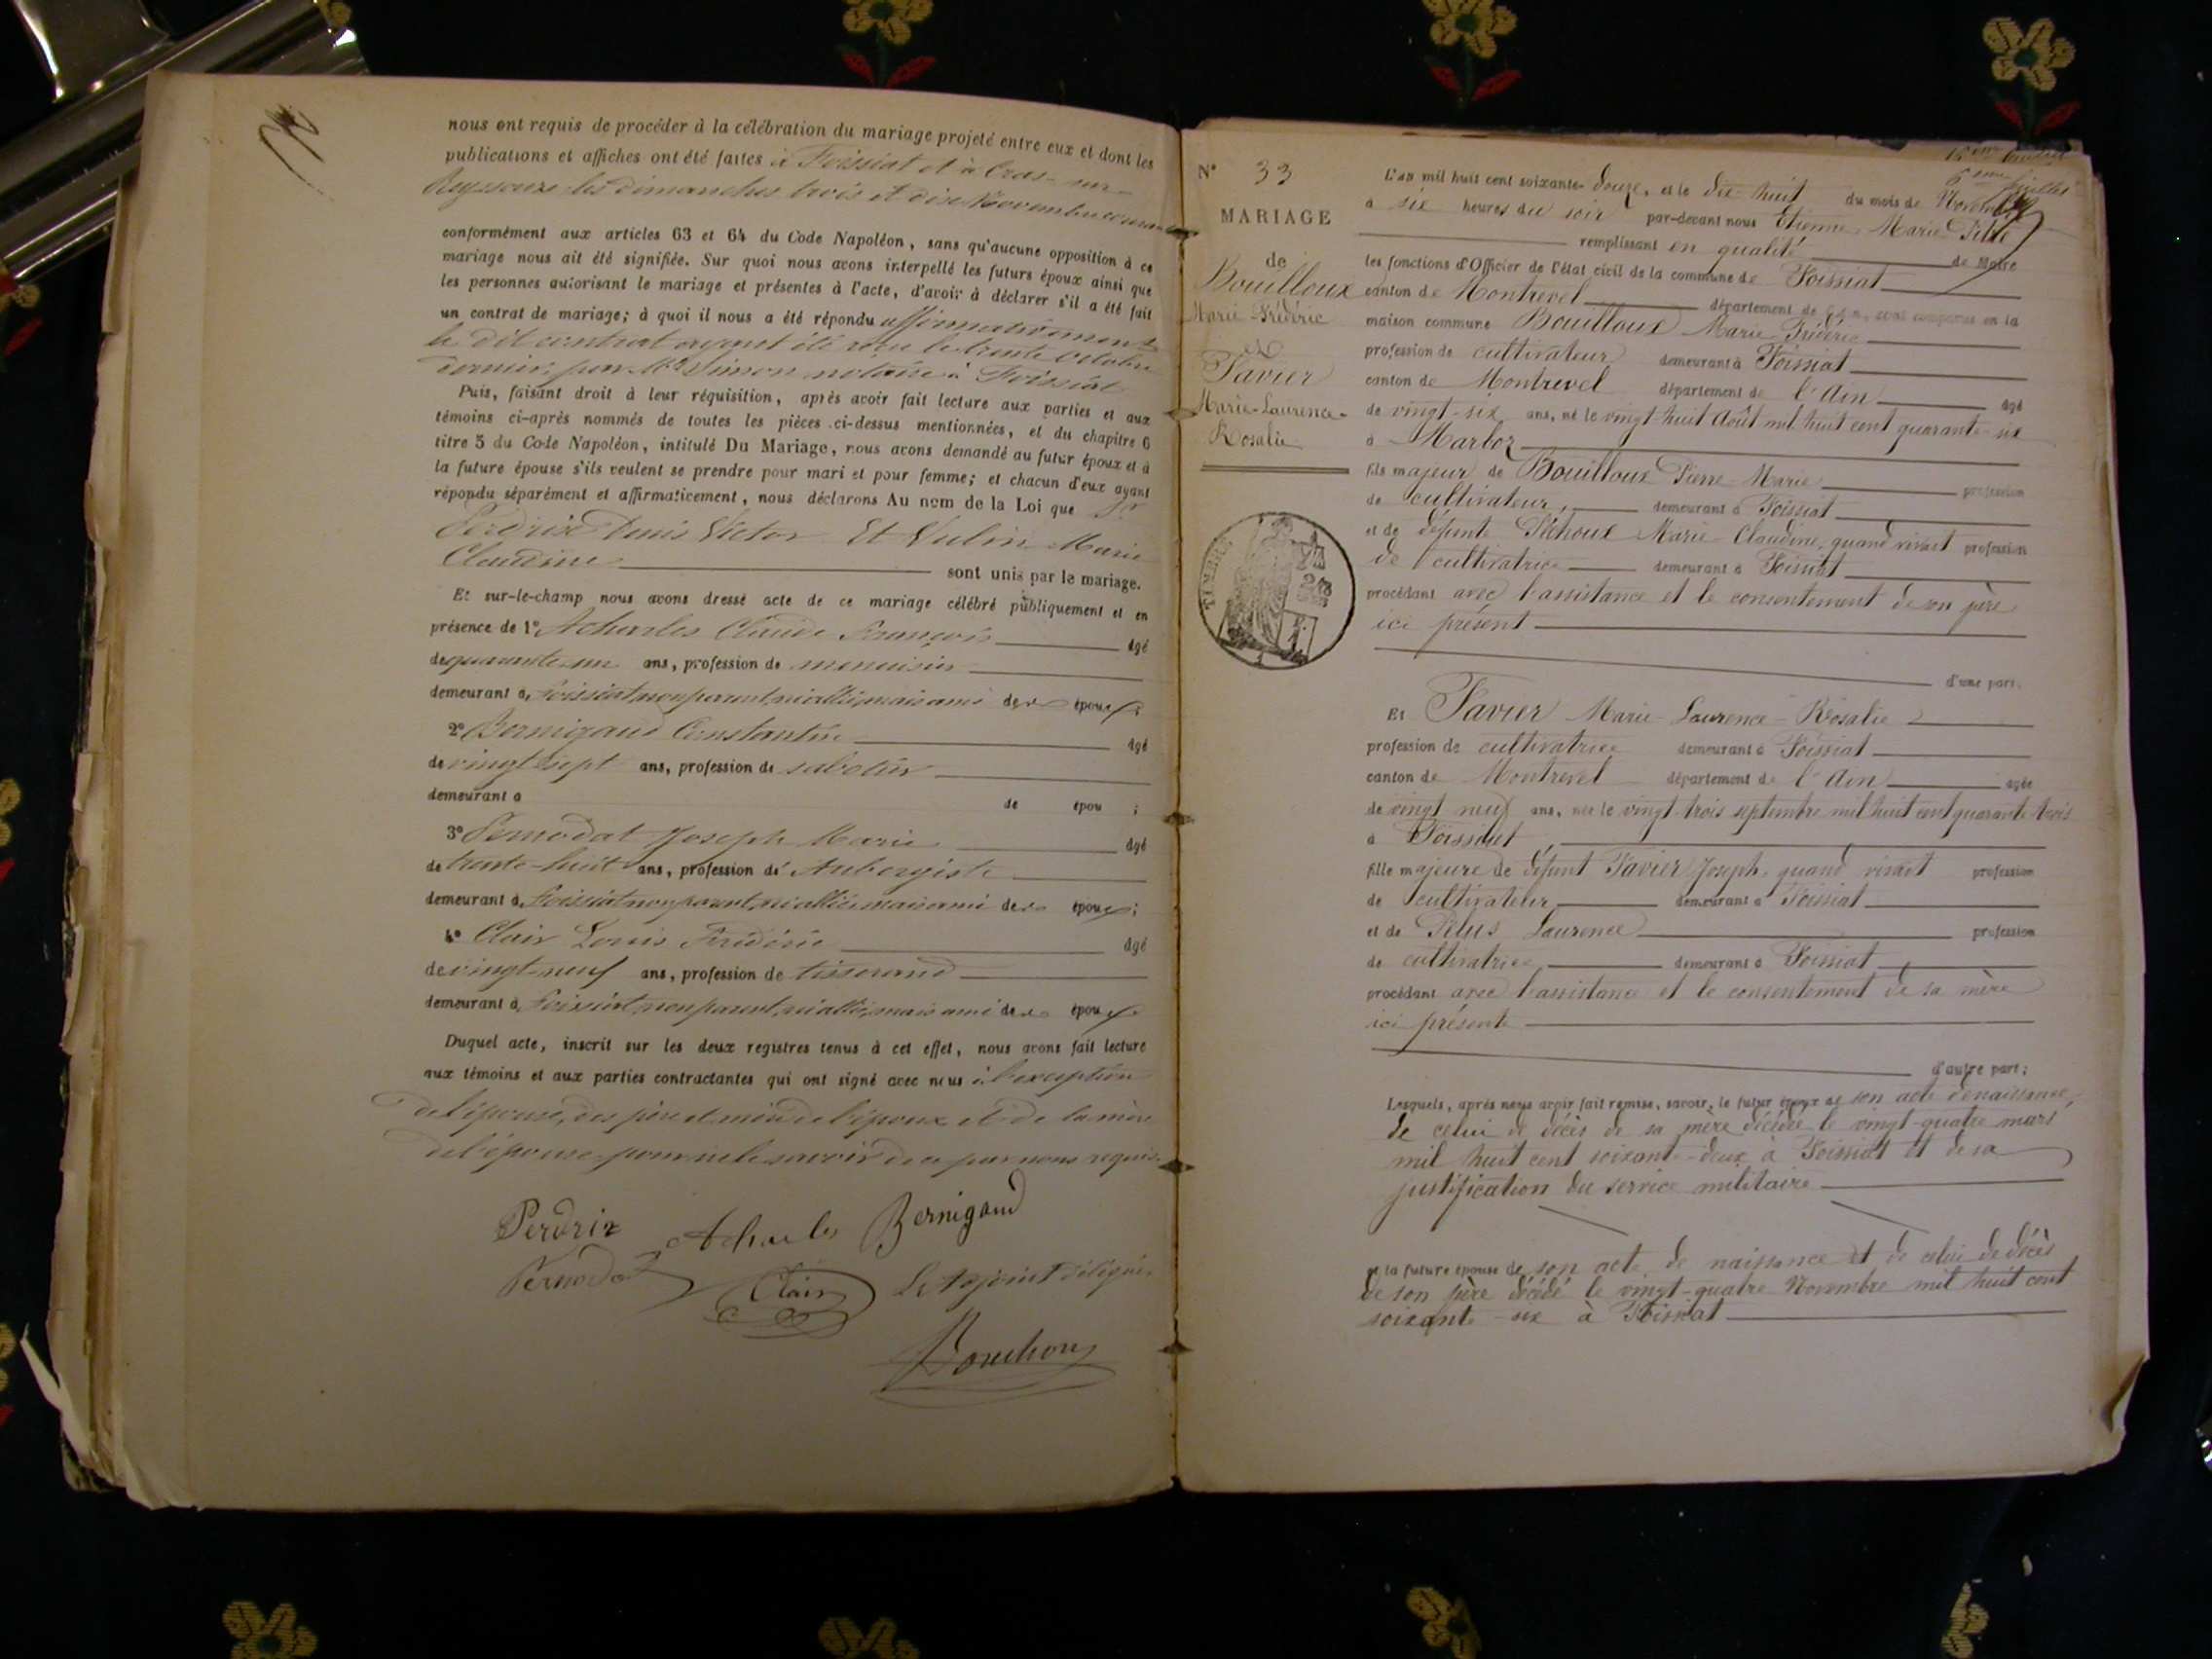 nous ont requis de procéder à la célébration du mariage projeté entre eux et dont les
publications et affiches ont été faites à Foissiat et à Cras-sur-
Reyssouze les dimanches trois et dix Novembre courant
conformément aux articles 63 et 64 du Code Napoléon, sans qu'aucune opposition à ce
mariage nous ait été signifiée. Sur quoi nous avons interpellé les futurs époux ainsi que
les personnes autorisant le mariage et présentes à l'acte, d'avoir à déclarer s'il a été fait
un contrat de mariage; à quoi il nous a été répondu affirmativement
le dit contrat ayant été reçu le trente octobre
dernier, par Me Simon notaire à Foissiat
Puis, faisant droit à leur réquisition, après avoir fait lecture aux parties et aux
témoins ci-après nommés de toutes les pièces ci-dessus mentionnées, et du chapitre 6
titre 5 du Code Napoléon, intitulé Du Mariage, nous avons demandé au futur époux et à
la future épouse s'ils veulent se prendre pour mari et pour femme; et chacun d'eux ayant
répondu séparément et affirmativement, nous déclarons Au nom de la Loi que
Perdrix Denis Victor Et Vulin Marie
Claudine sont unis par le mariage.
Et sur-le-champ nous avons dressé acte de ce mariage célébré publiquement et en
présence de 1° Acharles Claude François âgé
de quarante un ans, profession de menuisier
demeurant à Foissiat non parent, ni allié, mais ami des époux;
2° Bernigaud Constantin âgé
de vingt sept ans, profession de sabotier
demeurant à de épou ;
3° Pernodat Joseph Marie âgé
de trente-huit ans, profession de Aubergiste
demeurant à Foissiat non parent, ni allié, mais ami des époux;
4° Clair Louis Frédéric âgé
de vingt-neuf ans, profession de tisserand
demeurant à Foissiat, non parent, ni allié, mais ami des époux
Duquel acte, inscrit sur les deux registres tenus à cet effet, nous avons fait lecture
aux témoins et aux parties contractantes qui ont signé avec nous à l'exception
de l'épouse, des père et mère de l'époux et de la mère
de l'épouse pour ne le savoir de ce par nous requis.
Perdrix Acharles Bernigaud
Pernodat Clair L'Adjoint délégué
Bouchoux
N° 33
MARIAGE
de
Bouilloux
Marie-Frédéric
et
Favier
Marie-Laurence-
Rosalie
TIMBRE
L'an mil huit cent soixante-douze, et le dix-huit du mois de Novembre
à six heures du soir par-devant nous Etienne Marie
remplissant en qualité de Maire
les fonctions d'Officier de l'état civil de la commune de Foissiat
canton de Montrevel département de l'Ain, sont comparus en la
maison commune Bouilloux Marie-Frédéric
profession de cultivateur demeurant à Foissiat
canton de Montrevel département de l'Ain âgé
de vingt-six ans, né le vingt-huit Août mil huit cent quarante-six
à Marboz
fils majeur de Bouilloux Pierre-Marie profession
de cultivateur, demeurant à Foissiat
et de défunte Péchoux Marie-Claudine, quand vivait profession
de cultivatrice demeurant à Foissiat
procédant avec l'assistance et le consentement de son père
ici présent
d'une part.
Et Favier Marie-Laurence-Rosalie
profession de cultivatrice demeurant à Foissiat
canton de Montrevel département de l'Ain âgée
de vingt neuf ans, née le vingt-trois septembre mil huit cent quarante trois
à Foissiat
fille majeure de défunt Favier Joseph, quand vivait profession
de cultivateur demeurant à Foissiat
et de Pelus Laurence profession
de cultivatrice demeurant à Foissiat
procédant avec l'assistance et le consentement de sa mère
ici présente
d'autre part;
Lesquels, après nous avoir fait remise, savoir, le futur époux de son acte de naissance,
de celui de décès de sa mère décédée le vingt-quatre mars
mil huit cent soixante-deux à Foissiat et de sa
justification du service militaire
et la future épouse de son acte de naissance et de celui de décès
de son père décédé le vingt-quatre Novembre mil huit cent
soixante-six à Foissiat